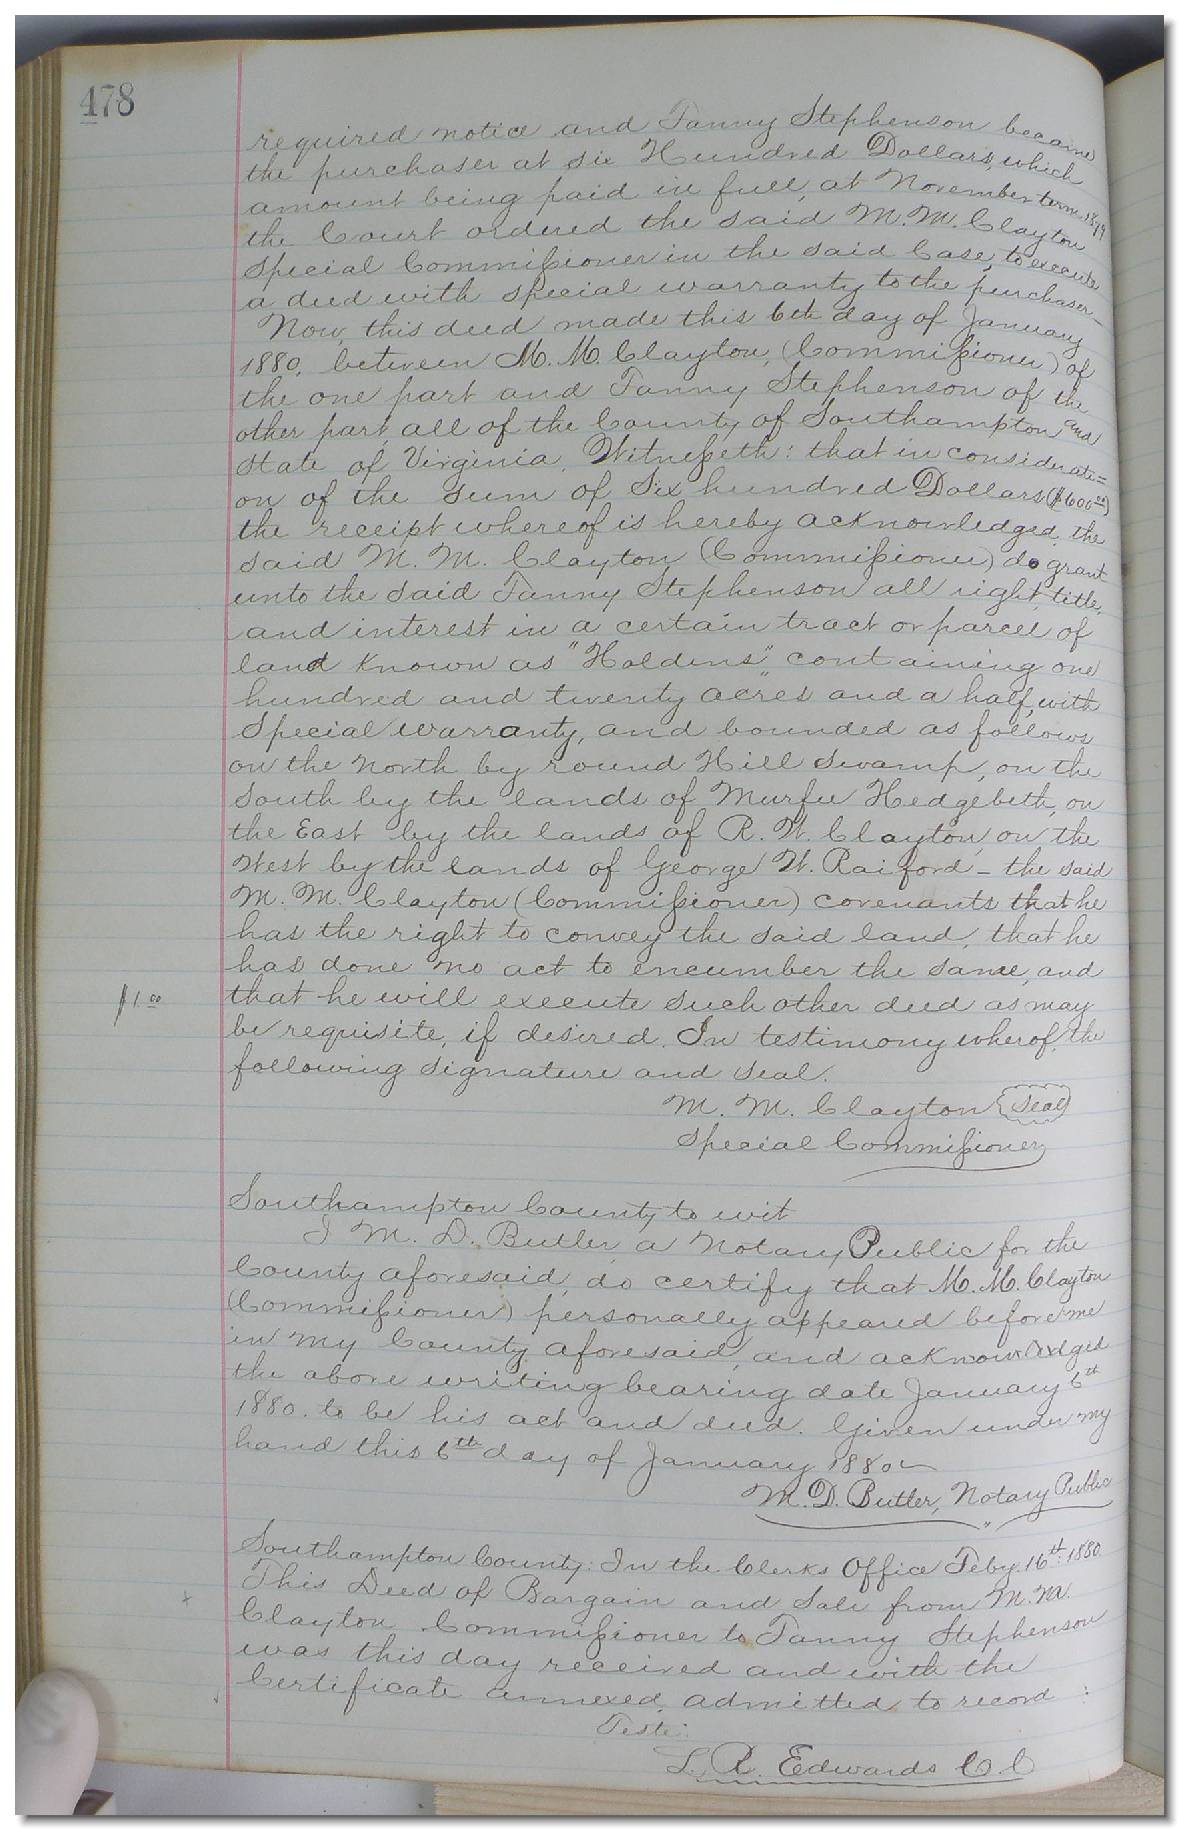 478
required notice and Fanny Stephenson became
the purchaser at six Hundred Dollars, which
amount being paid in full, at November term 1879
the Court ordered the said M. M. Clayton
special Commissioner in the said Case, to execute
a deed with special warranty to the purchaser—
Now, this deed made this 6th day of January
1880, between M. M. Clayton, (Commissioner) of
the one part and Fanny Stephenson of the
other part, all of the County of Southampton and
State of Virginia, Witnesseth: that in considerati=
on of the sum of Six hundred Dollars ($600.00)
the receipt whereof is hereby acknowledged, the
said M. M. Clayton (Commissioner) do grant
unto the said Fanny Stephenson all right, title,
and interest in a certain tract or parcel of
land known as "Holdens" containing one
hundred and twenty acres and a half, with
special warranty, and bounded as follows
on the North by round Hill swamp, on the
South by the lands of Murfee Hedgebeth, on
the East by the lands of R. W. Clayton, on the
West by the lands of George W. Raiford – the said
M. M. Clayton (Commissioner) covenants that he
has the right to convey the said land, that he
has done no act to encumber the same, and
$1.00
that he will execute such other deed as may
be requisite, if desired. In testimony wherof, the
following signature and seal.
M. M. Clayton (Seal)
Special Commissioner
Southampton County to wit
I M. D. Butler, a Notary Public for the
County aforesaid, do certify that M. M. Clayton
(Commissioner) personally appeared before me
in my County aforesaid, and acknowledged
the above writing bearing date January 6th
1880. to be his act and deed. Given under my
hand this 6th day of January 1880
M. D. Butler, Notary Public
Southampton County: In the Clerks Office Feby. 16th: 1880.
This Deed of Bargain and Sale from M. M.
Clayton, Commissioner to Fanny Stephenson
was this day received and with the
Certificate annexed, admitted to record :
Teste:
L. R. Edwards C C